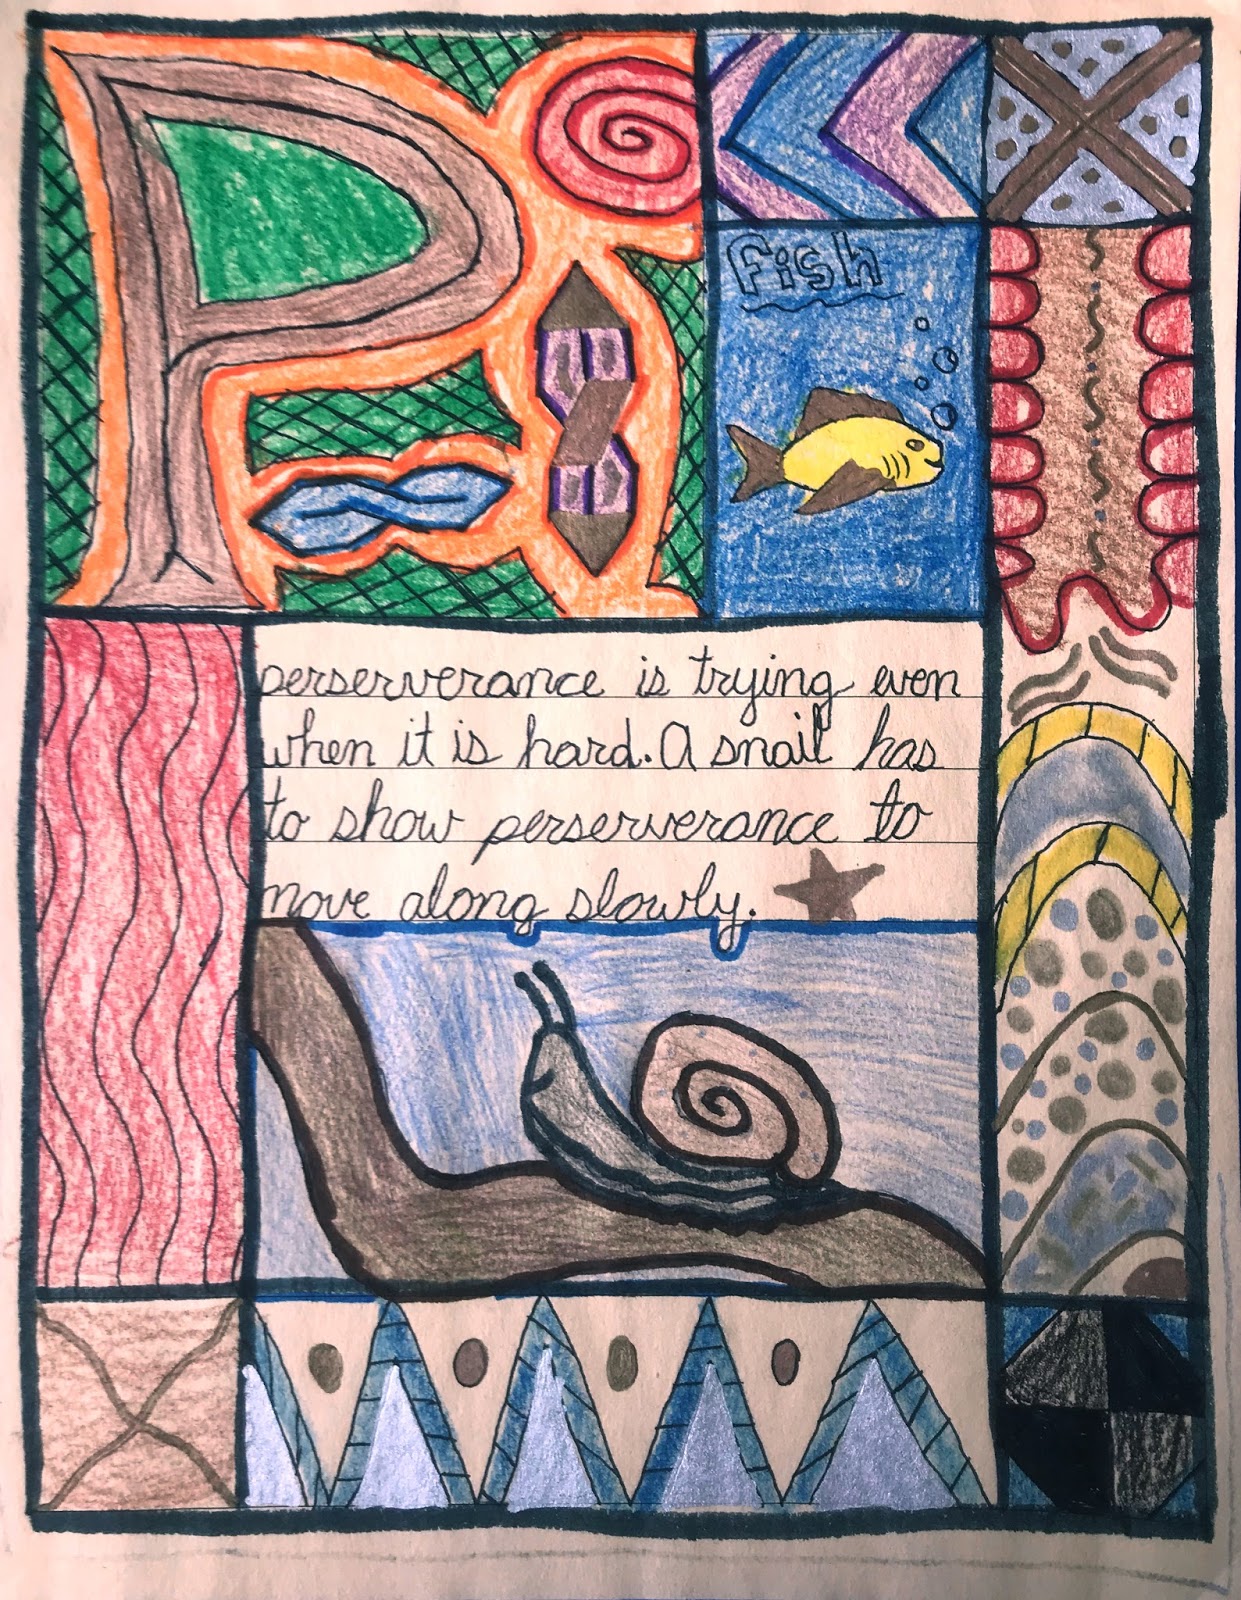 P
fish
perserverance is trying even
when it is hard. A snail has
to show perserverance to
move along slowly.